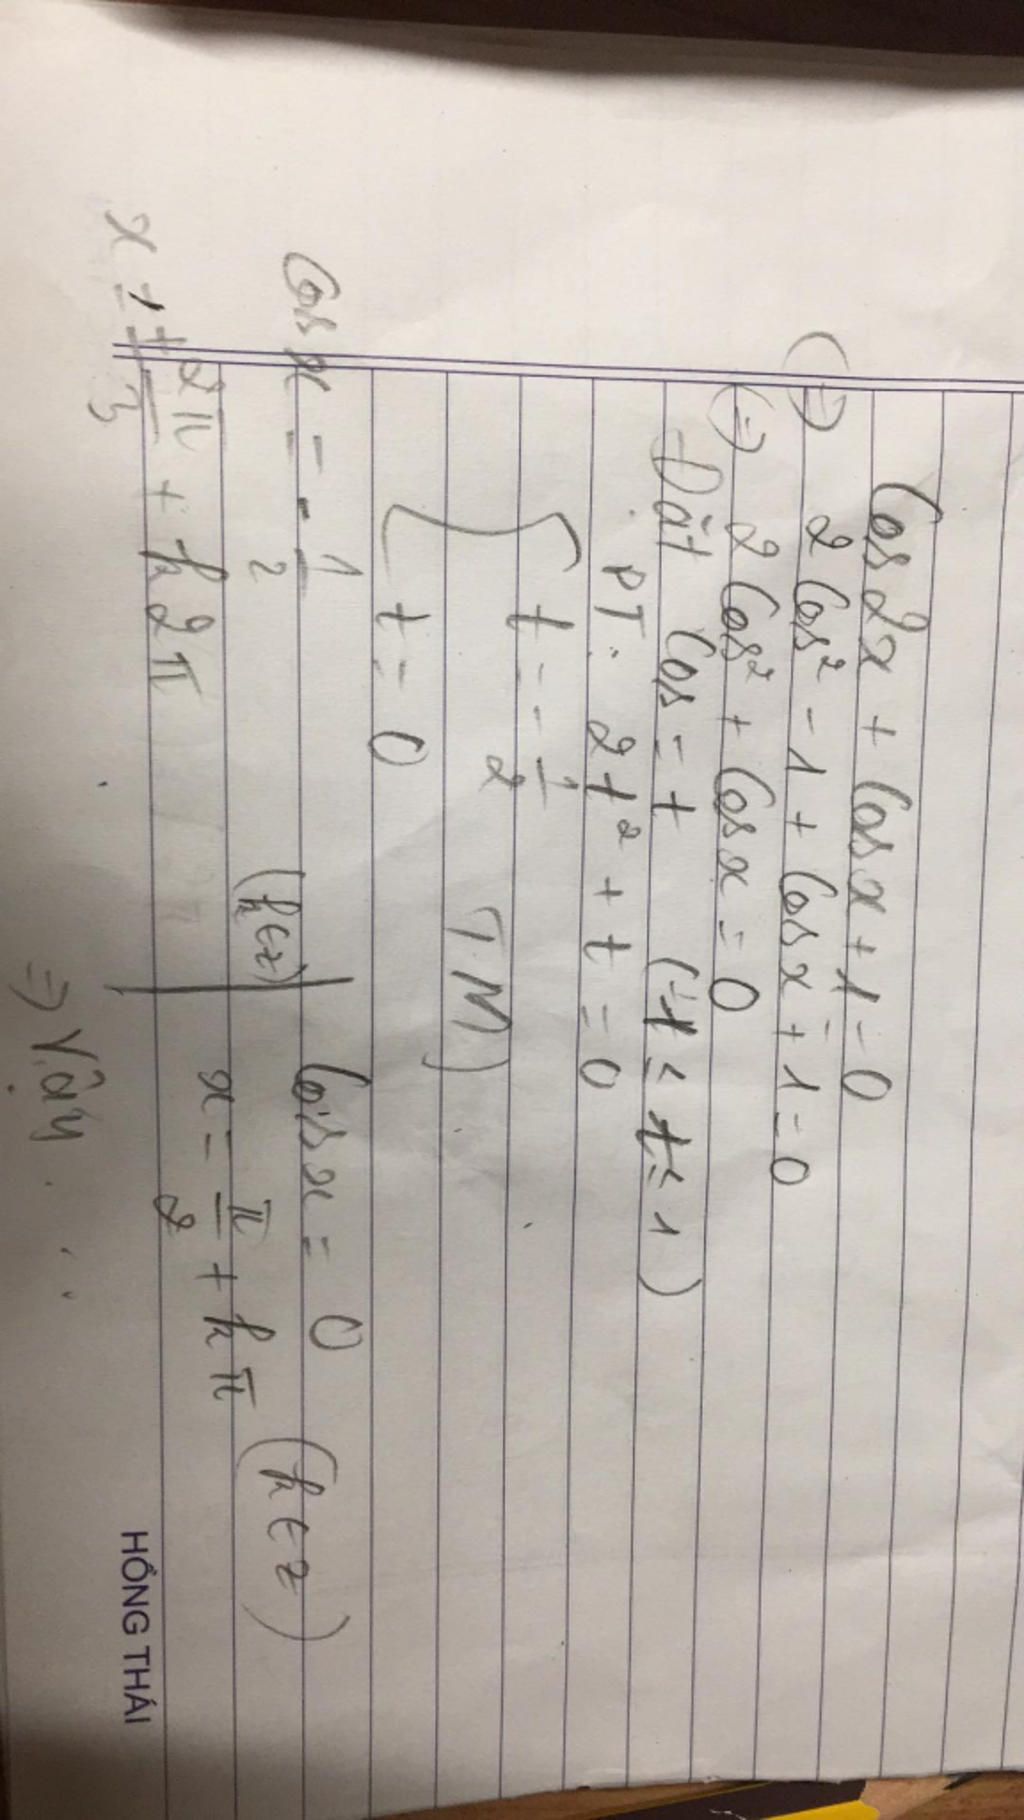 Cos 2x + Cos x + 1 = 0
(=) 2 Cos² - 1 + Cos x + 1 = 0
(=) 2 Cos² + Cos x = 0
Đặt Cos = t (-1 ≤ t ≤ 1)
PT: 2t² + t = 0
[ t = - 1/2
(TM)
[ t = 0
Cos x = - 1/2
(k ∈ Z)
x = ± 2π/3 + k2π
Cos x = 0
x = π/2 + kπ (k ∈ Z)
=> Vậy ...
HỒNG THÁI